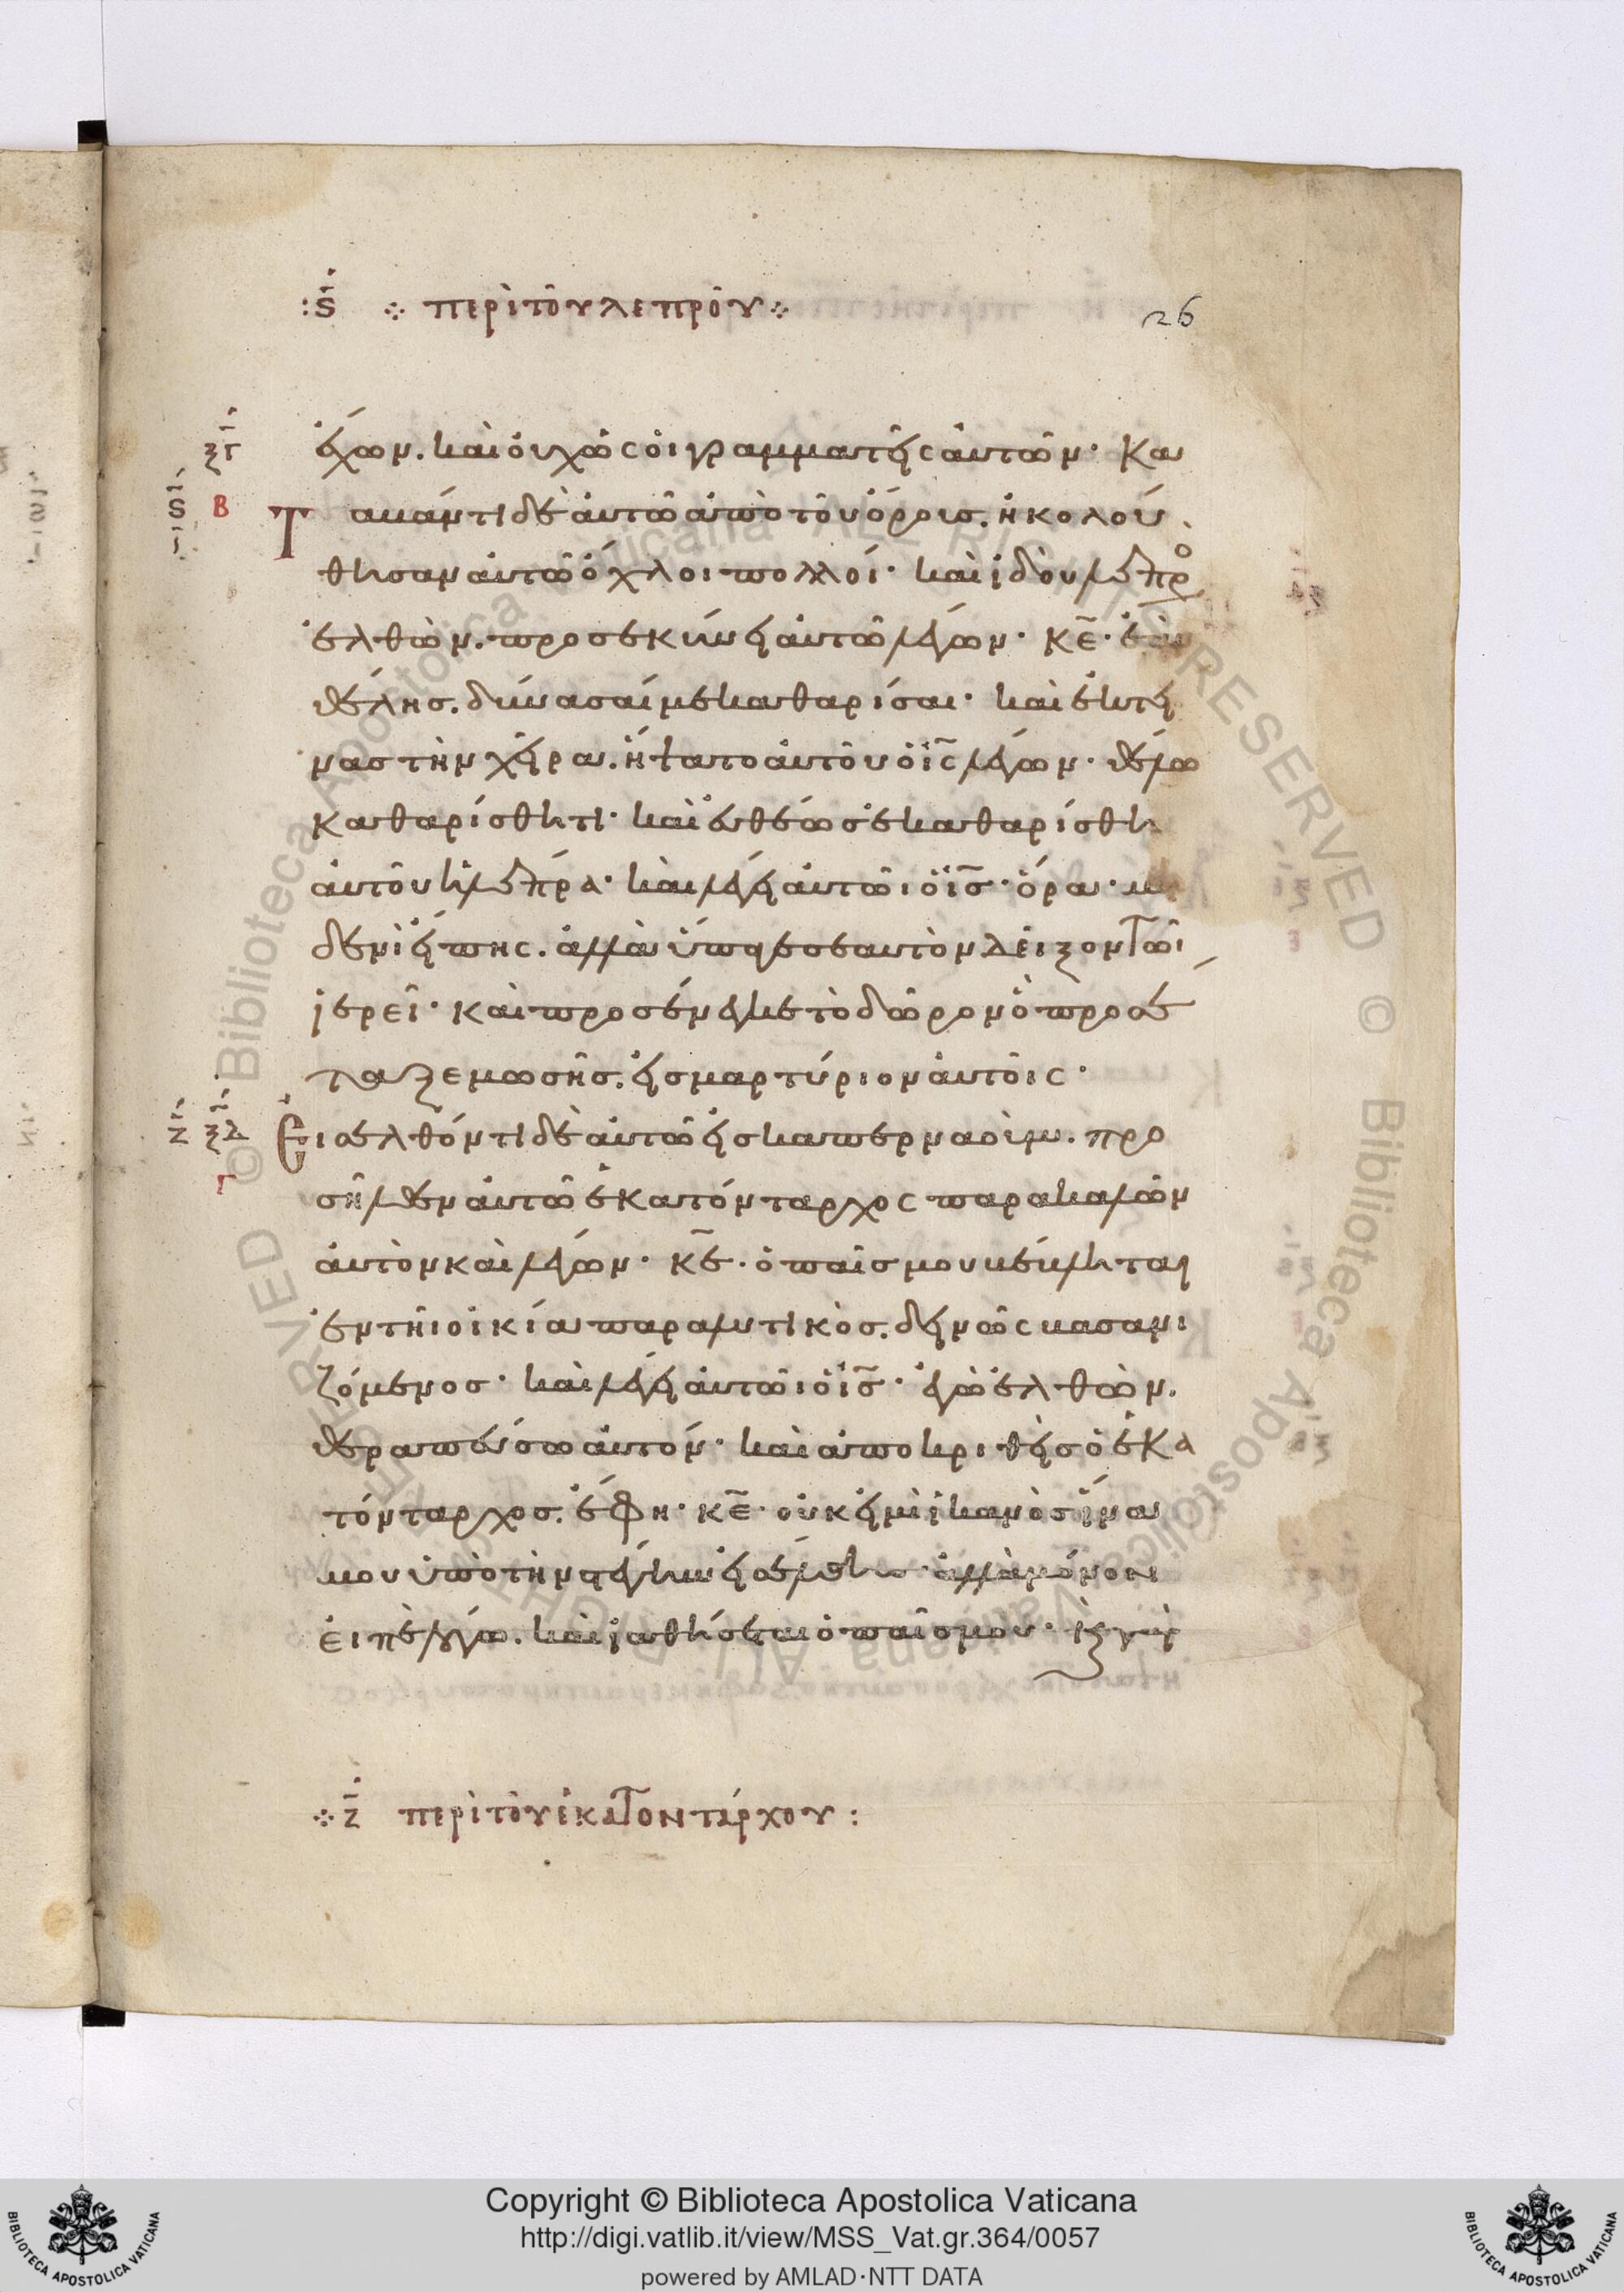 :ϛ̅ ⁘ περὶ τοῦ λεπροῦ ⁘
26
ξ̅γ̅
ἔχων. καὶ οὐχ ὡς οἱ γραμματεῖς αὐτῶν· Κα
ϛ̅ Β
ταβάντι δὲ αὐτῶ ἀπὸ τοῦ ὄρους. ἠκολού
θησαν αὐτῶ ὄχλοι πολλοί· καὶ ἰδοὺ λεπρο
ἐλθὼν. προσεκύνει αὐτῶ λέγων· κ̅ε̅· ἐὰν
θέλης. δύνασαί με καθαρίσαι· καὶ ἐκτεί
νας τὴν χεῖρα. ἥψατο αὐτοῦ ὁ ι̅ς̅ λέγων· θέλω
καθαρίσθητι· καὶ εὐθέως ἐκαθαρίσθη
αὐτοῦ ἡ λέπρα· καὶ λέγει αὐτῶι ὁ ι̅ς̅· ὅρα· μη
δενὶ εἴπης. ἀλλὰ ὕπαγε σεαυτὸν δεῖξον τῶι
ἱερεῖ· καὶ προσένεγκε τὸ δῶρον ὃ προσέ
ταξε μωσῆς. εἰς μαρτύριον αὐτοῖς·
ζ̅ ξ̅δ̅
Εἰσελθόντι δὲ αὐτῶ εἰς καπερναούμ. προ
Γ
σῆλθεν αὐτῶ ἑκατόνταρχος παρακαλῶν
αὐτὸν καὶ λέγων· κ̅ε̅· ὁ παῖς μου βέβληται
ἐν τῆι οἰκία παραλυτικὸς. δεινῶς βασανι
ζόμενος· καὶ λέγει αὐτῶι ὁ ι̅ς̅· ἐγὼ ἐλθὼν.
θεραπεύσω αὐτόν· καὶ ἀποκριθεὶς ὁ ἑκα
τόνταρχος. ἔφη· κ̅ε̅· οὐκ εἰμὶ ἱκανὸς ἵνα
μου ὑπὸ τὴν στέγην εἰσέλθης· ἀλλὰ μόνον
εἰπὲ λόγω. καὶ ἰαθήσεται ὁ παῖς μου· κ(αὶ) γὰρ
⁘ ζ̅ περὶ τοῦ ἑκατοντάρχου :
Copyright © Biblioteca Apostolica Vaticana
http://digi.vatlib.it/view/MSS_Vat.gr.364/0057
powered by AMLAD·NTT DATA